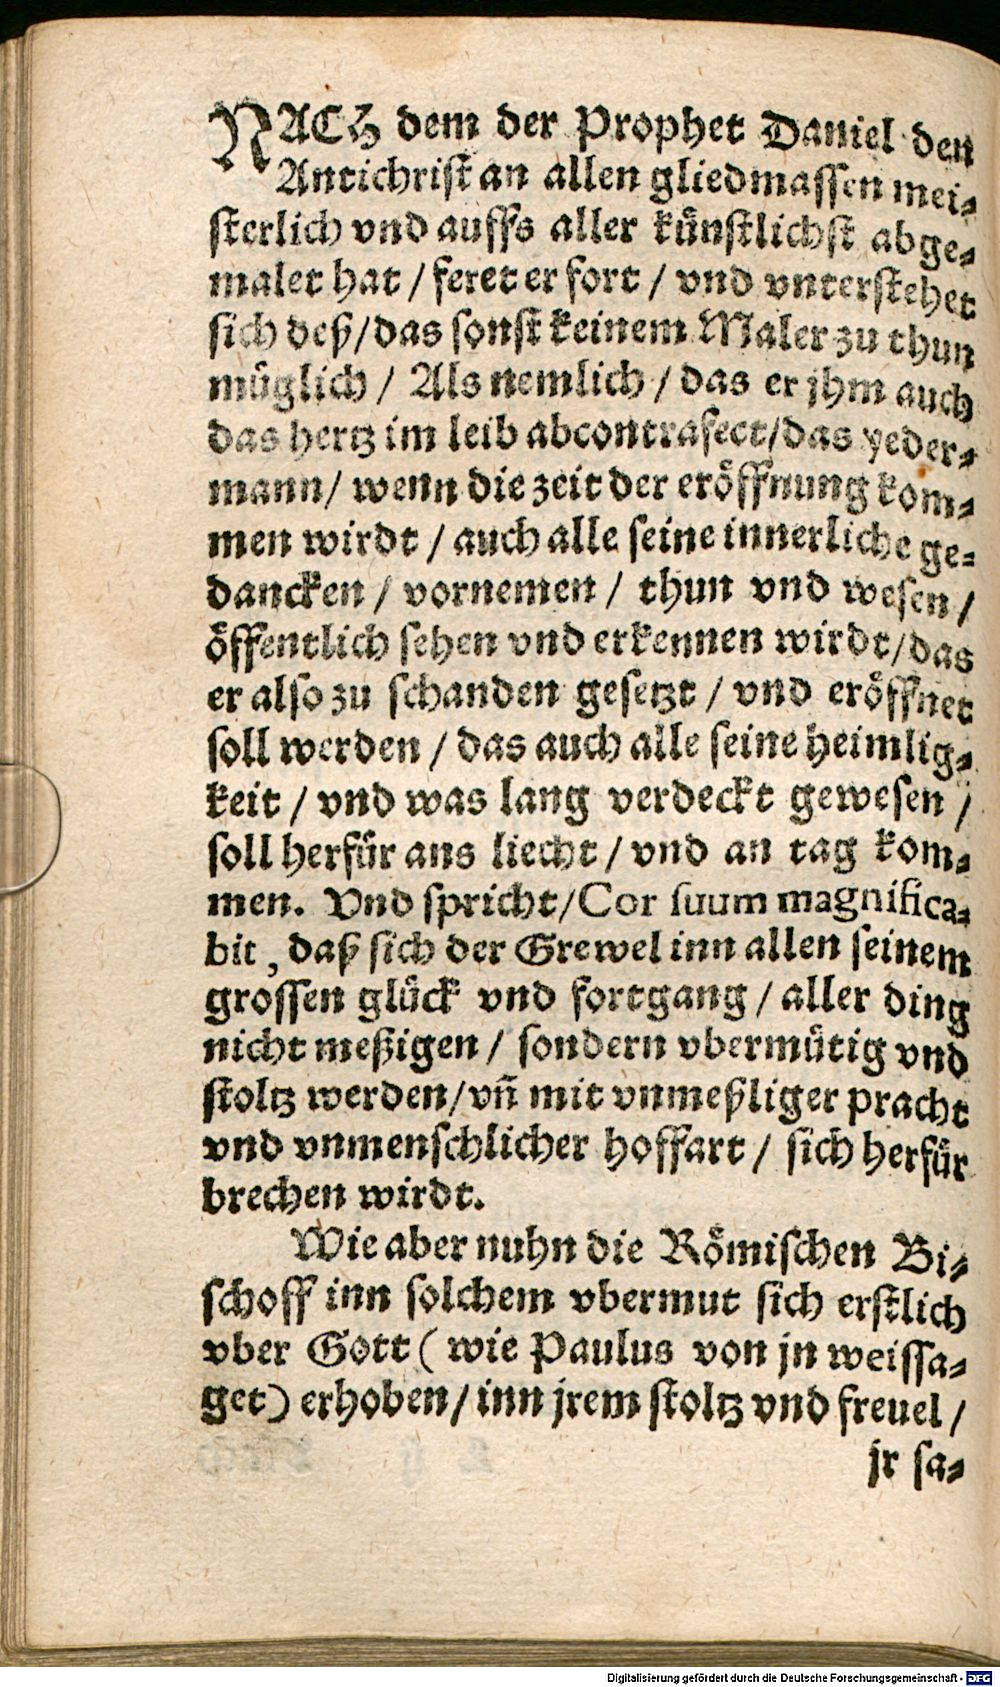 NACH dem der Prophet Daniel den
Antichrist an allen gliedmassen mei-
sterlich vnd auffs aller künstlichst abge-
malet hat / feret er fort / vnd vnterstehet
sich deß/das sonst keinem Maler zu thun
müglich / Als nemlich / das er jhm auch
das hertz im leib abcontrafect/das yeder-
mann/ wenn die zeit der eröffnung kom-
men wirdt / auch alle seine innerliche ge-
dancken / vornemen / thun vnd wesen /
öffentlich sehen vnd erkennen wirdt/das
er also zu schanden gesetzt / vnd eröffnet
soll werden / das auch alle seine heimlig-
keit / vnd was lang verdeckt gewesen /
soll herfür ans liecht / vnd an tag kom-
men. Vnd spricht/Cor suum magnifica-
bit, daß sich der Grewel inn allen seinem
grossen glück vnd fortgang / aller ding
nicht meßigen / sondern vbermütig vnd
stoltz werden/vñ mit vnmeßliger pracht
vnd vnmenschlicher hoffart / sich herfür
brechen wirdt.
Wie aber nuhn die Römischen Bi-
schoff inn solchem vbermut sich erstlich
vber Gott ( wie Paulus von jn weissa-
get) erhoben/inn jrem stoltz vnd freuel /
jr sa-
Digitalisierung gefördert durch die Deutsche Forschungsgemeinschaft - DFG